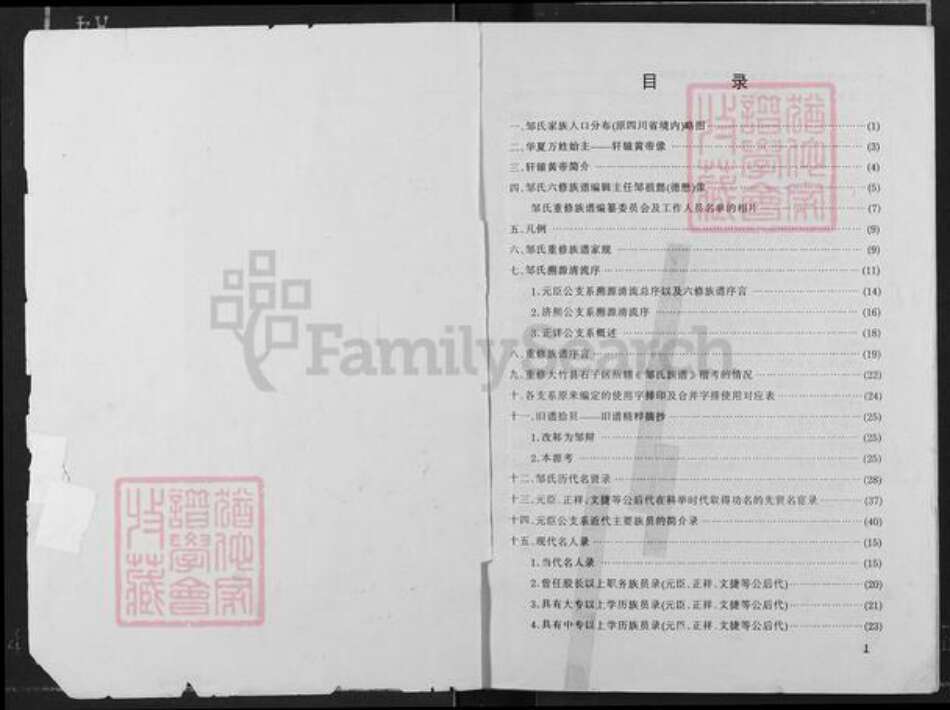 目 录
一.邹氏家族人口分布(原四川省境内)略图 (1)
二.华夏万姓始主——轩辕黄帝像 (3)
三.轩辕黄帝简介 (4)
四.邹氏六修族谱编辑主任邹祖懿(德懋)像 (5)
邹氏重修族谱编纂委员会及工作人员名单的相片 (7)
五.凡例 (9)
六.邹氏重修族谱家规 (9)
七.邹氏溯源清流序 (11)
1.元臣公支系溯源清流总序以及六修族谱序言 (14)
2.济熙公支系溯源清流序 (16)
3.正详公支系概述 (18)
八.重修族谱序言 (19)
九.重修大竹县石子区所辖《邹氏族谱》稽考的情况 (22)
十.各支系原来编定的使用字排印及合并字排使用对应表 (24)
十一.旧谱拾贝——旧谱精粹摘抄 (25)
1.改邾为邹辩 (25)
2.本源考 (25)
十二.邹氏历代名贤录 (28)
十三.元臣.正祥.文捷等公后代在科举时代取得功名的先贤名宦录 (37)
十四.元臣公支系近代主要族员的简介录 (40)
十五.现代名人录 (15)
1.当代名人录 (15)
2.曾任股长以上职务族员录(元臣.正祥.文捷等公后代) (20)
3.具有大专以上学历族员录(元臣.正祥.文捷等公后代) (21)
4.具有中专以上学历族员录(元臣.正祥.文捷等公后代) (23)
1
FamilySearch
猶他家譜學會收藏
猶他家譜學會收藏